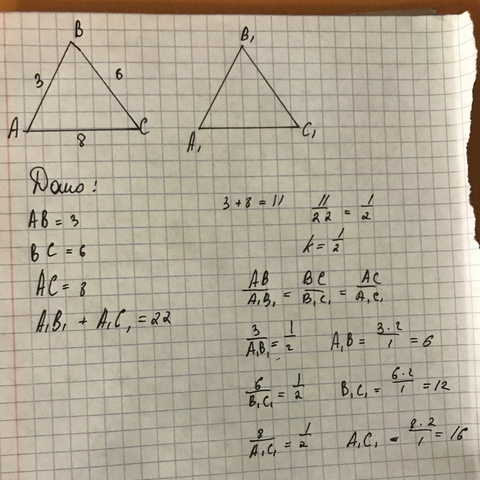 B
3
6
A
8
C
B₁
A₁
C₁
Дано:
AB = 3
BC = 6
AC = 8
A₁B₁ + A₁C₁ = 22
3 + 8 = 11
11/22 = 1/2
k = 1/2
AB/A₁B₁ = BC/B₁C₁ = AC/A₁C₁
3/A₁B₁ = 1/2
A₁B = 3·2/1 = 6
6/B₁C₁ = 1/2
B₁C₁ = 6·2/1 = 12
8/A₁C₁ = 1/2
A₁C₁ = 8·2/1 = 16